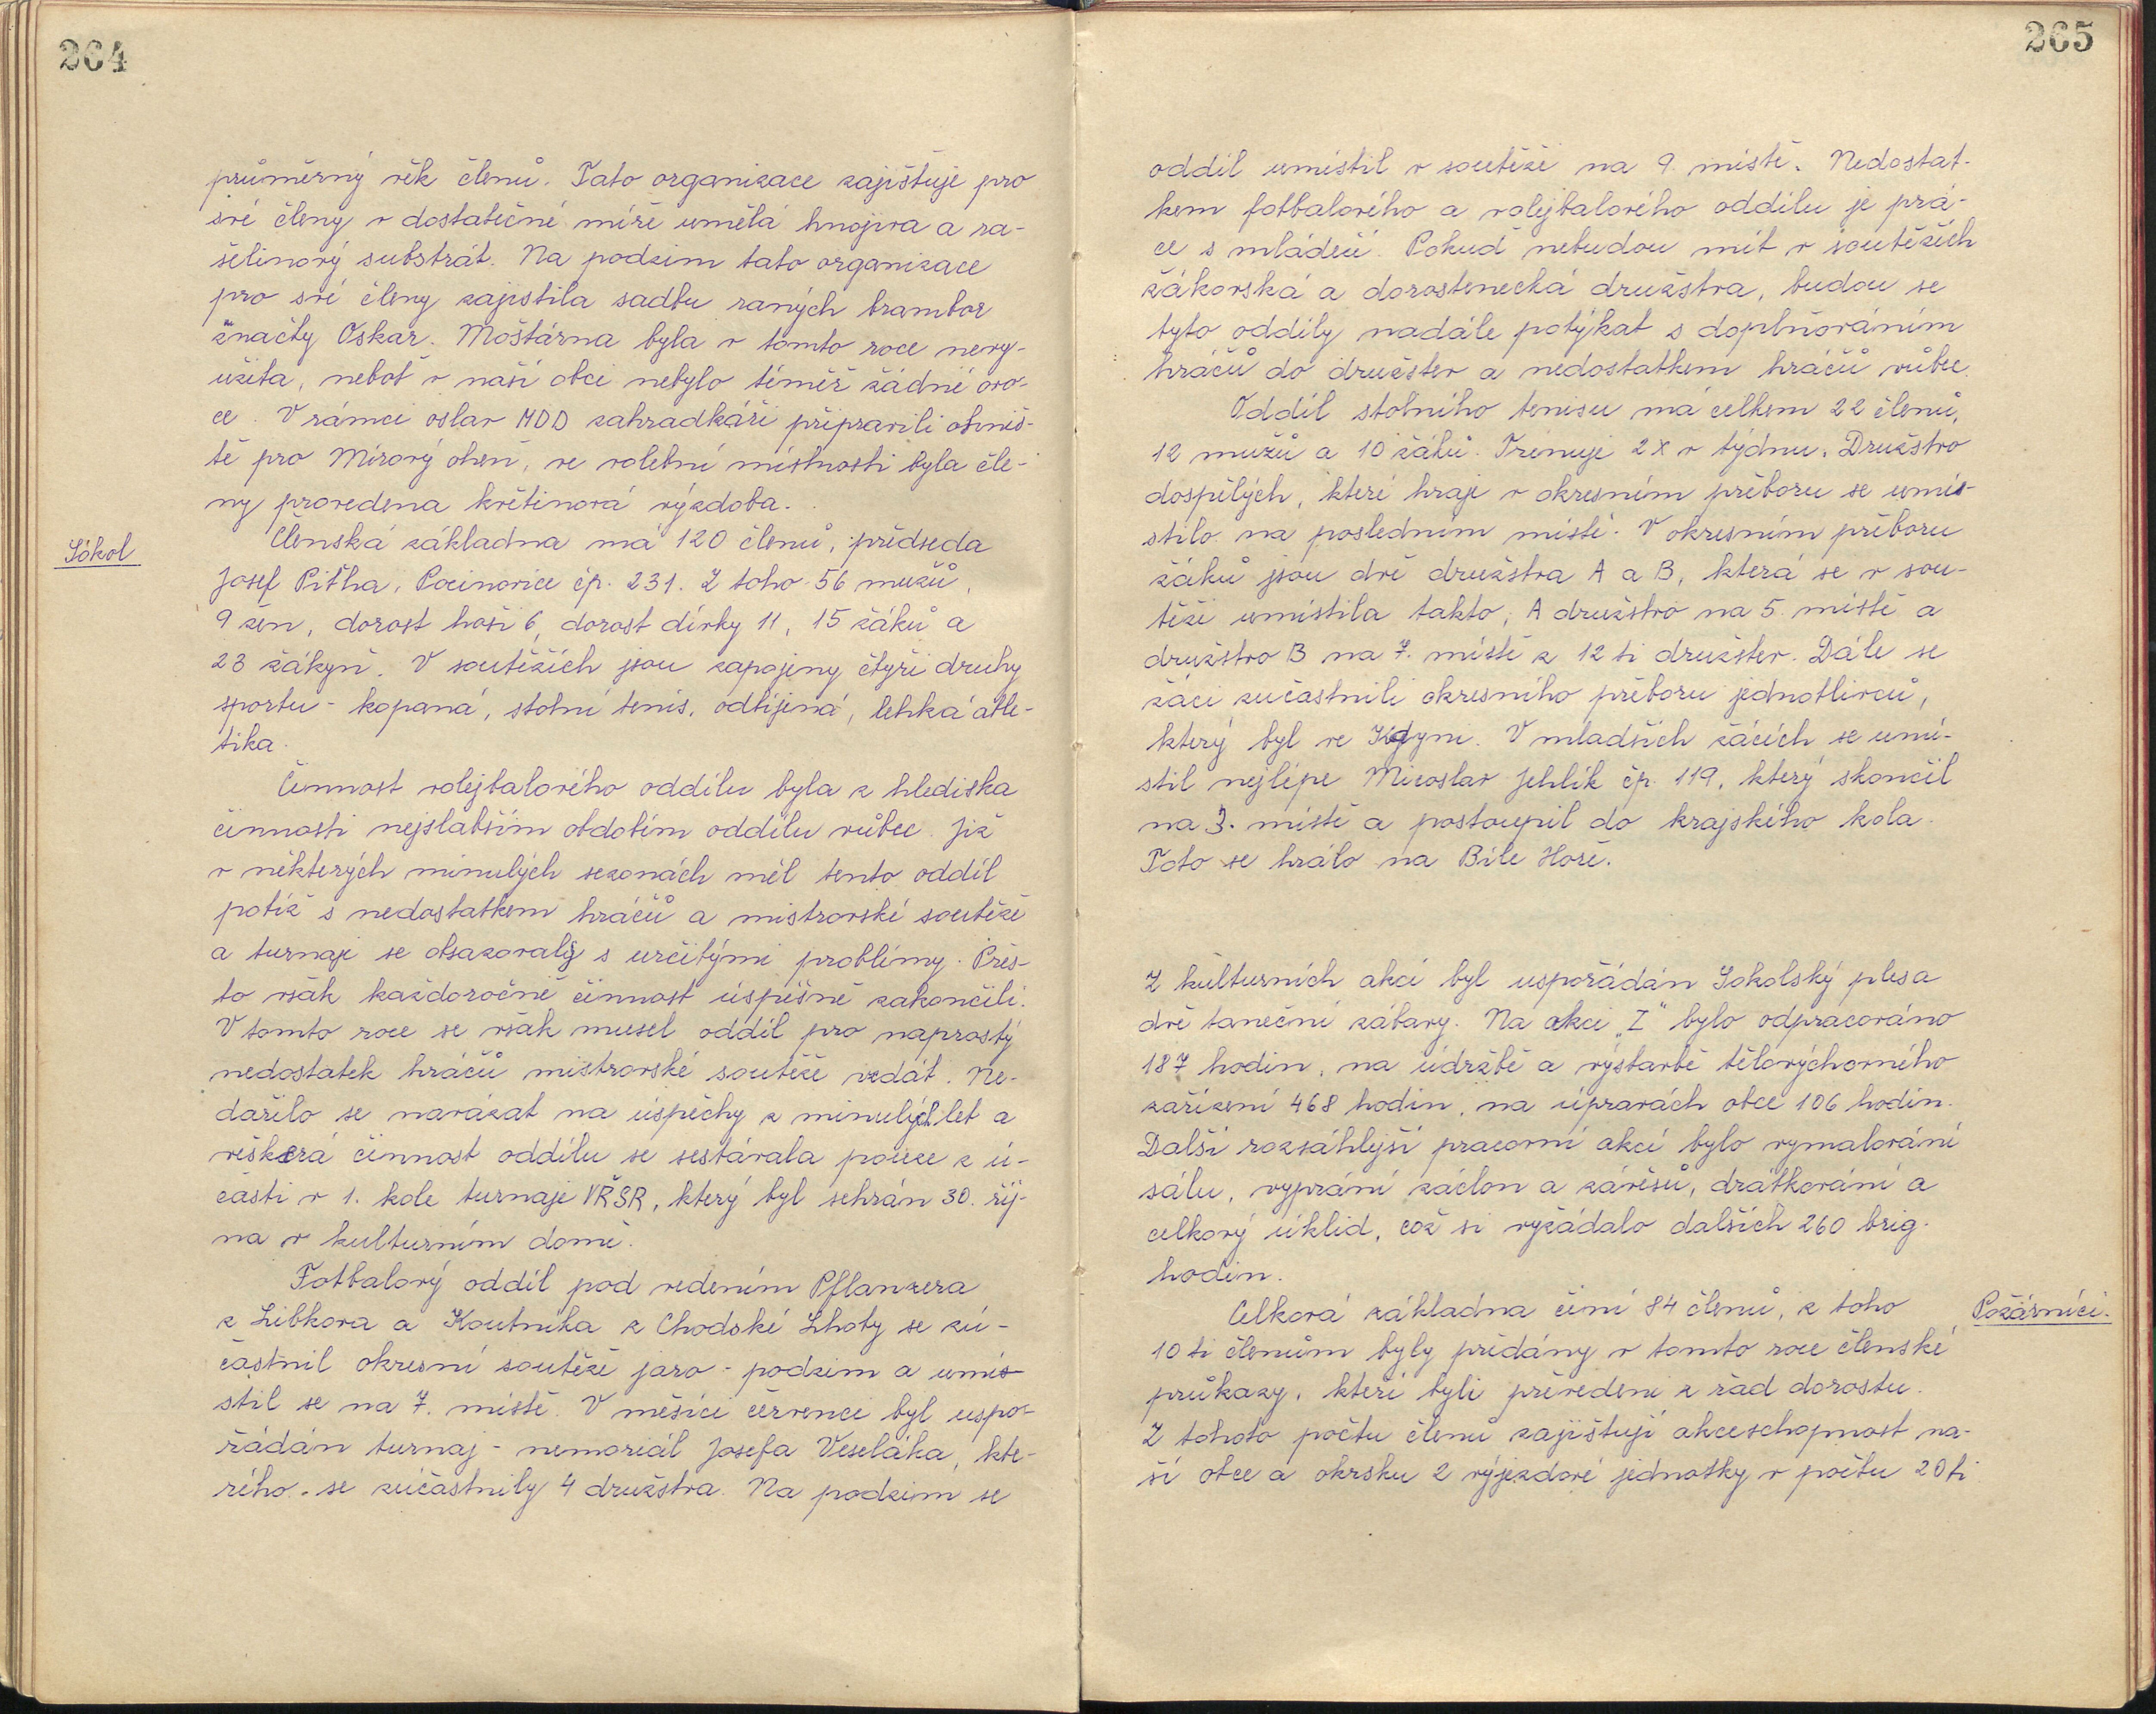 264
průměrný věk členů. Tato organizace zajišťuje pro
své členy v dostatečné míře umělá hnojiva a ra-
šelinový substrát. Na podzim tato organizace
pro své členy zajistila sadbu raných brambor
značky Oskar. Moštárna byla v tomto roce nevy-
užita, neboť v naší obci nebylo téměř žádné ovo-
ce. V rámci oslav MDD zahradkáři připravili ohniš-
tě pro Mírový oheň, ve volební místnosti byla čle-
ny provedena květinová výzdoba.
Sokol
Členská základna má 120 členů, předseda
Josef Pitha, Pocinovice čp. 231. Z toho 56 mužů,
9 žen, dorost hoši 6, dorost dívky 11, 15 žáků a
23 žákyň. V soutěžích jsou zapojeny čtyři druhy
sportu - kopaná, stolní tenis, odbíjená, lehká atle-
tika.
Činnost volejbalového oddílu byla z hlediska
činnosti nejslabším obdobím oddílu vůbec. Již
v některých minulých sezonách měl tento oddíl
potíž s nedostatkem hráčů a mistrovské soutěže
a turnaje se obsazovaly s určitými problémy. Přes-
to však každoročně činnost úspěšně zakončili.
V tomto roce se však musel oddíl pro naprostý
nedostatek hráčů mistrovské soutěže vzdát. Ne-
dařilo se navázat na úspěchy z minulých let a
veškerá činnost oddílu se sestávala pouze z ú-
časti v 1. kole turnaje VŘSR, který byl sehrán 30. říj-
na v kulturním domě.
Fotbalový oddíl pod vedením Pflanzera
z Libkova a Koutníka z Chodské Lhoty se zú-
častnil okresní soutěže jaro - podzim a umís-
stil se na 7. místě. V měsíci červenci byl uspo-
řádán turnaj - memoriál Josefa Veseláka, kte-
rého se zúčastnily 4 družstva. Na podzim se
265
oddíl umístil v soutěži na 9. místě. Nedostat-
kem fotbalového a volejbalového oddílu je prá-
ce s mládeží. Pokud nebudou mít v soutěžích
žákovská a dorostenecká družstva, budou se
tyto oddíly nadále potýkat s doplňováním
hráčů do družstev a nedostatkem hráčů vůbec.
Oddíl stolního tenisu má celkem 22 členů,
12 mužů a 10 žáků. Trenuje 2x v týdnu. Družstvo
dospělých, které hraje v okresním přeboru se umís-
stilo na posledním místě. V okresním přeboru
žáků jsou dvě družstva A a B, která se v sou-
těži umístila takto; A družstvo na 5. místě a
družstvo B na 7. místě z 12 ti družstev. Dále se
žáci zúčastnili okresního přeboru jednotlivců,
který byl ve Kdyni. V mladších žácích se umí-
stil nejlépe Miroslav Jehlík čp. 119, který skončil
na 3. místě a postoupil do krajského kola.
Toto se hrálo na Bíle Hoře.
Z kulturních akcí byl uspořádán Sokolský ples a
dvě taneční zábavy. Na akci „Z" bylo odpracováno
187 hodin, na údržbě a výstavbě tělovýchovného
zařízení 468 hodin, na úpravách obce 106 hodin.
Další rozsáhlejší pracovní akcí bylo vymalování
sálu, vyprání záclon a závěsů, drátkování a
celkový úklid, což si vyžádalo dalších 260 brig.
hodin.
Požárníci.
Celková základna činí 84 členů, z toho
10 ti členům byly předány v tomto roce členské
průkazy, kteří byli převedeni z řad dorostu.
Z tohoto počtu členů zajišťují akceschopnost na-
ší obce a okrsku 2 výjezdové jednotky v počtu 20 ti